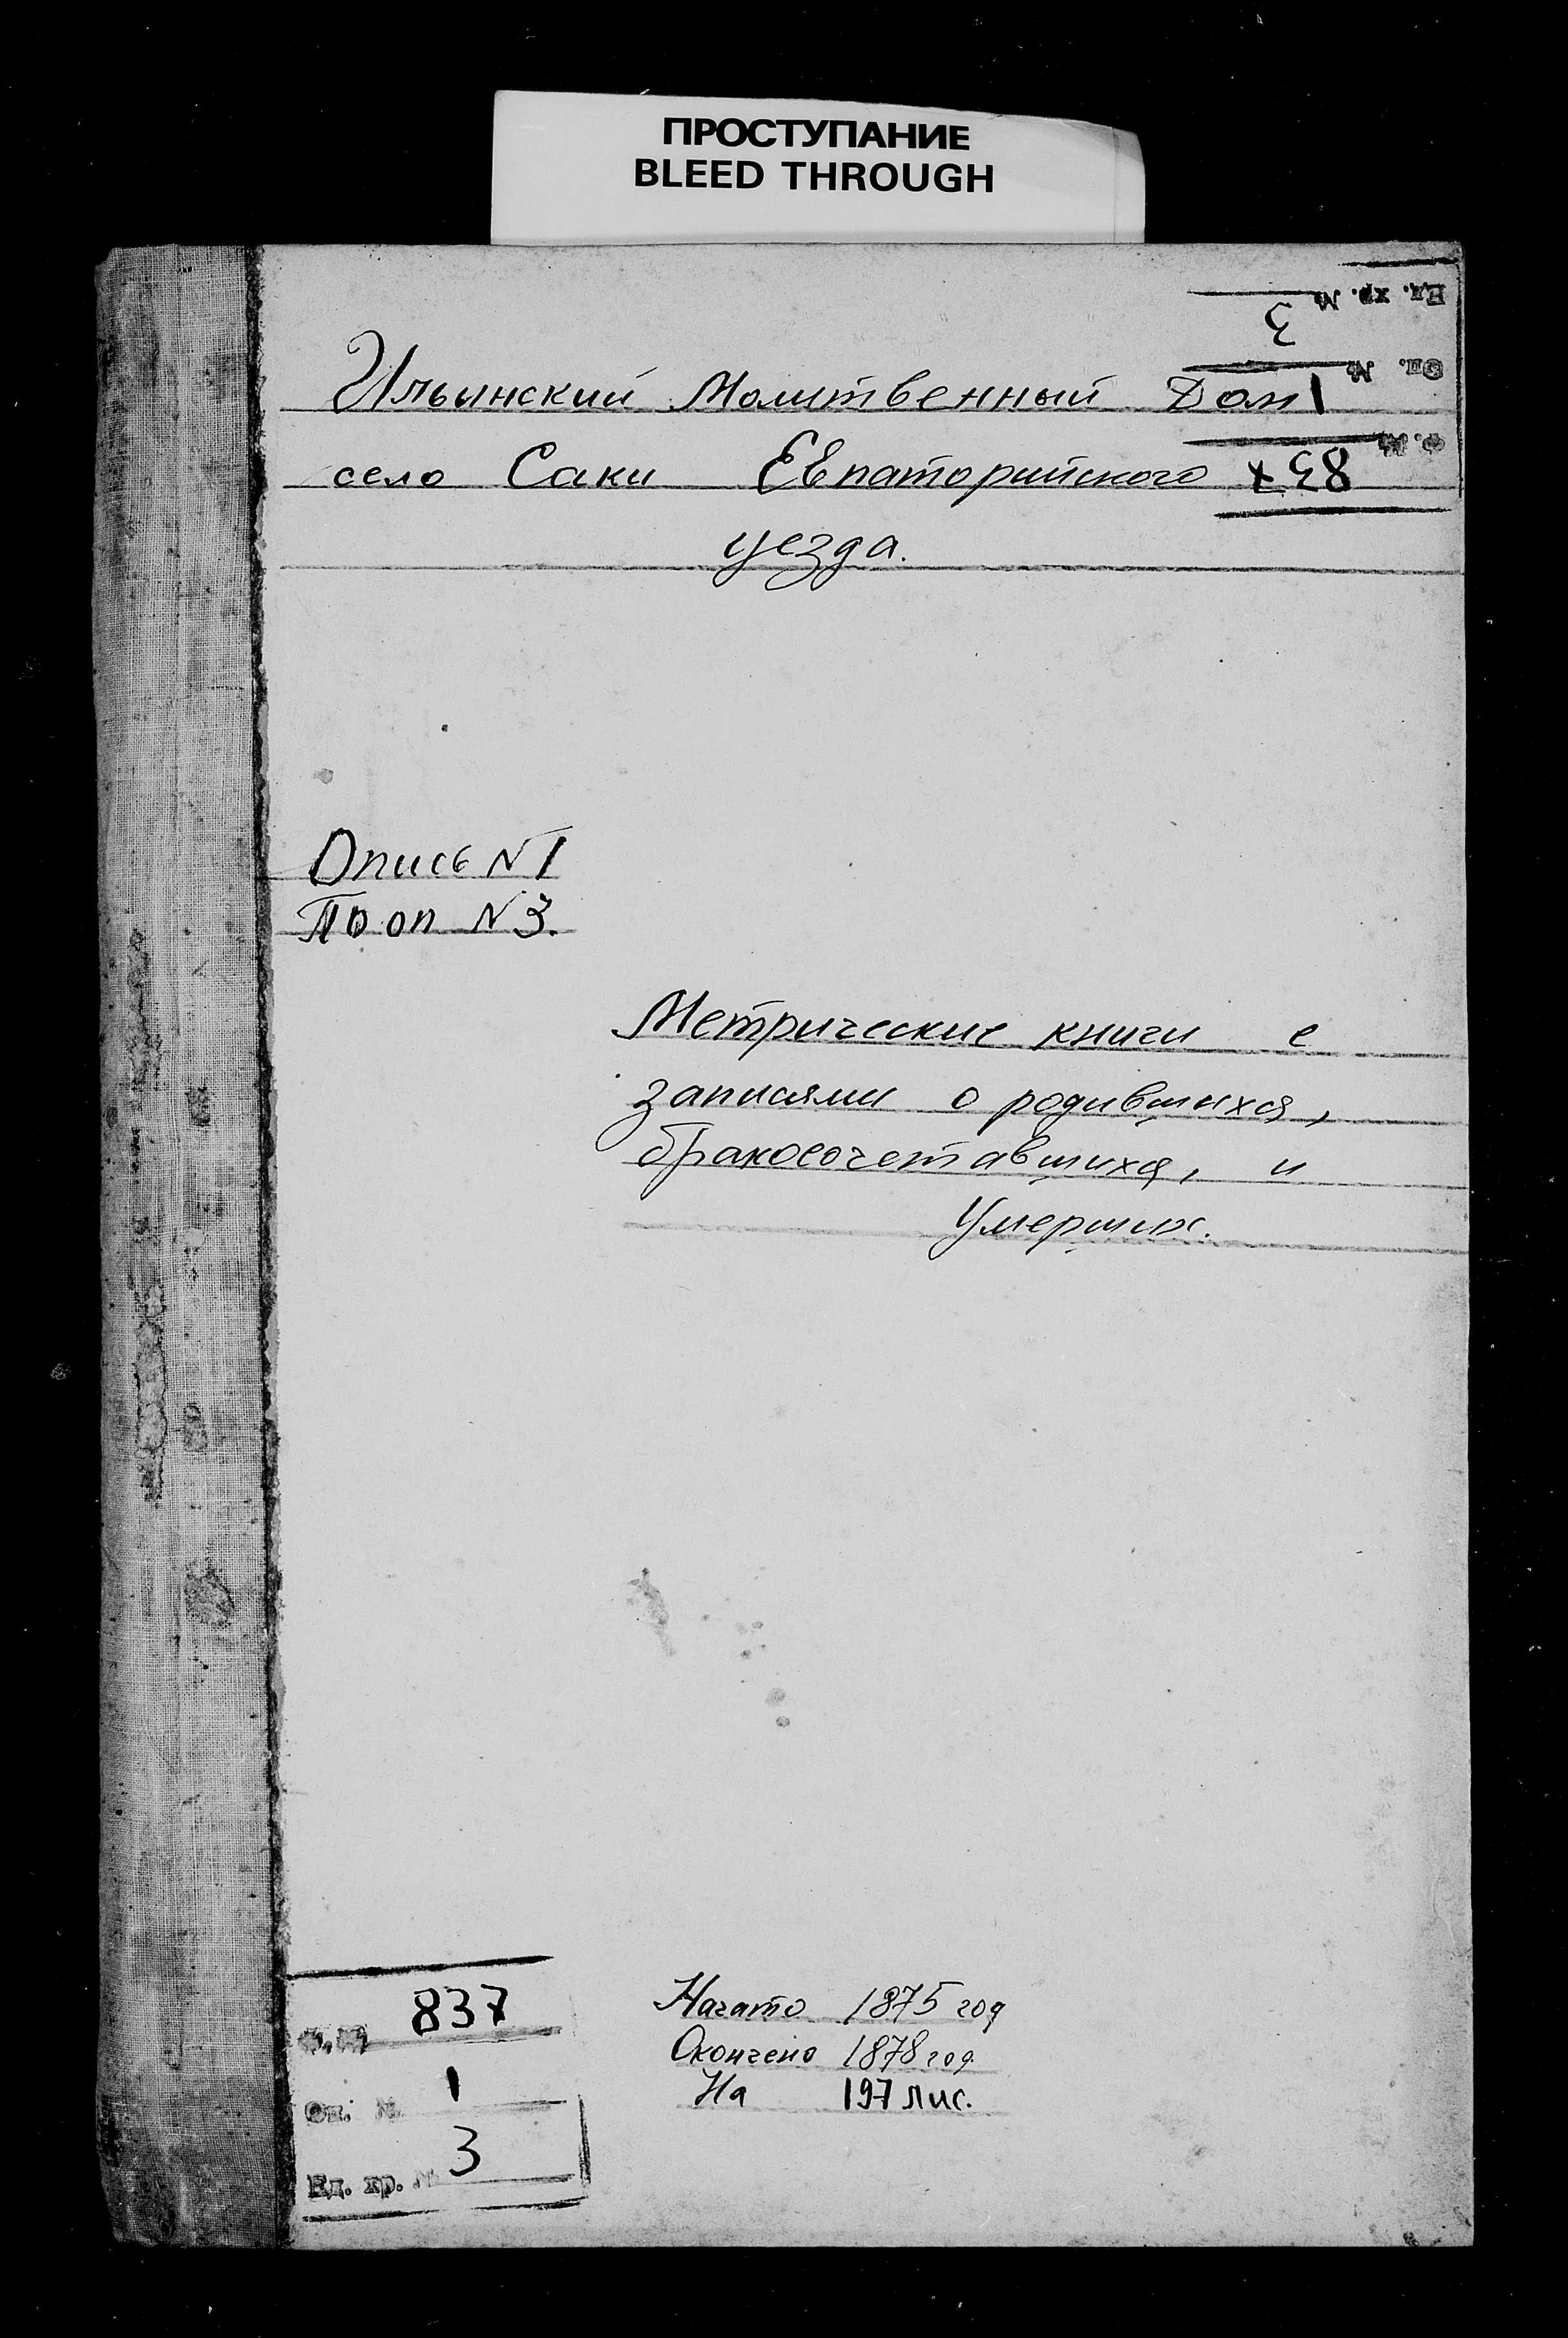 ПРОСТУПАНИЕ
BLEED THROUGH
Ед. хр. № 3
Оп. № 1
Ф. № 837
Ильинский Молитвенный Дом
село Саки Евпаторийского
уезда.
Опись N 1
По оп N 3.
Метрические книги с
записями о родившихся,
бракосочетавшихся, и
Умерших.
Ф. № 837
Оп. № 1
Ед. хр. № 3
Начато 1875 год
Окончено 1878 год
На 197 лис.